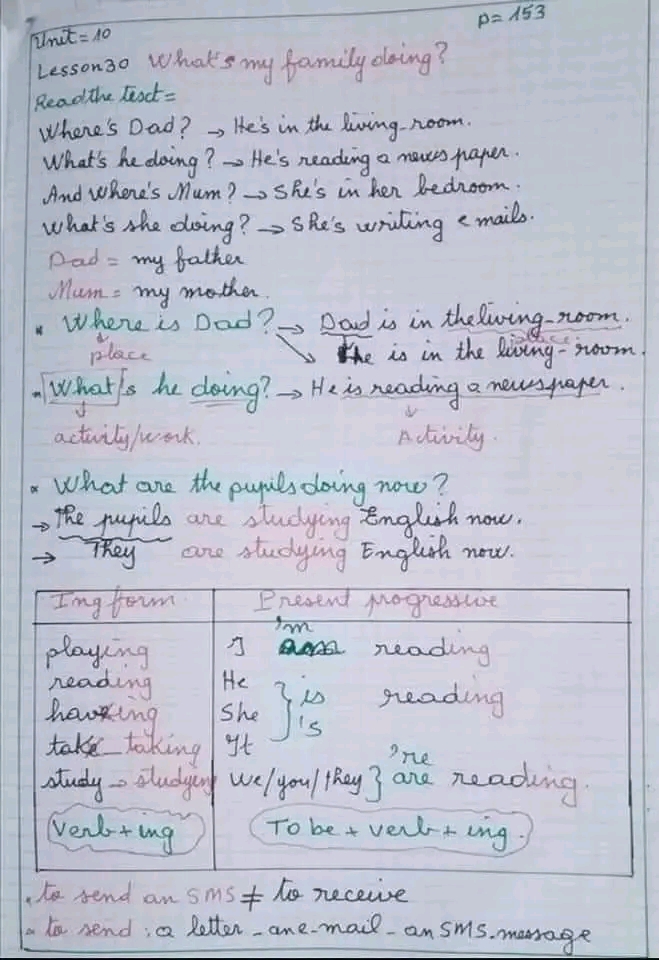 Unit = 10
p = 153
Lesson 30 What's my family doing?
Read the text =
Where's Dad? → He's in the living-room.
What's he doing? → He's reading a newspaper.
And Where's Mum? → She's in her bedroom.
What's she doing? → She's writing e mails.
Dad = my father
Mum = my mother.
* Where is Dad? → Dad is in the living-room.
place place
He is in the living-room.
* What's he doing? → He is reading a newspaper.
activity/work. Activity.
* What are the pupils doing now?
→ The pupils are studying English now.
→ They are studying English now.
Ing form Present progressive
'm
playing I am reading
reading He
having She } is 's reading
take taking It
're
study → studying We/you/they } are reading.
Verb + ing To be + verb + ing.
* to send an SMS ≠ to receive
* to send : a letter - an e-mail - an SMS-message